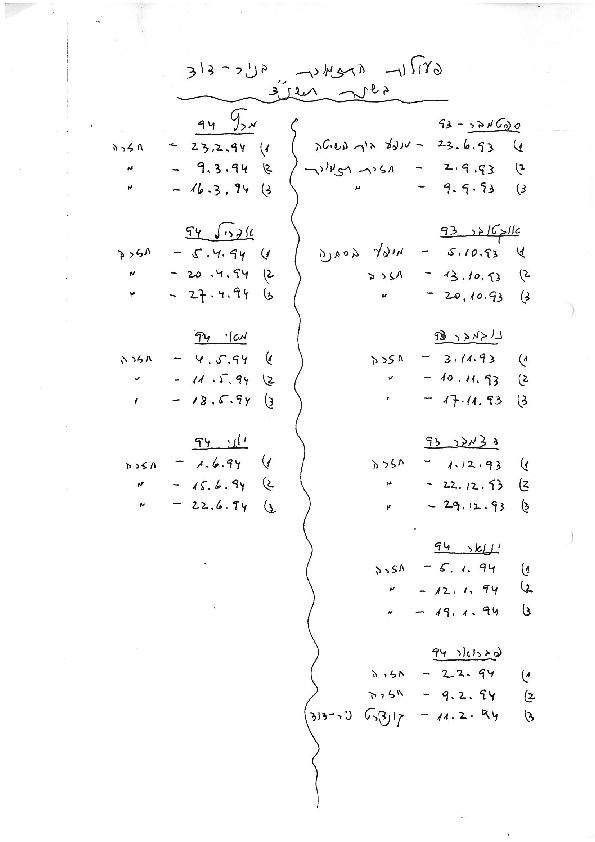 פעולות התזמורת בניר-דוד
בשנת תשנ"ד
ספטמבר - 93
1) 23.6.93 - מופע בית השיטה
2) 2.9.93 - חזרת תזמורת
3) 9.9.93 - "
אוקטובר 93
1) 5.10.93 - מופע בסחנה
2) 13.10.93 - חזרה
3) 20.10.93 - "
נובמבר 93
1) 3.11.93 - חזרה
2) 10.11.93 - "
3) 17.11.93 - "
דצמבר 93
1) 1.12.93 - חזרה
2) 22.12.93 - "
3) 29.12.93 - "
ינואר 94
1) 5.1.94 - חזרה
2) 12.1.94 - "
3) 19.1.94 - "
פברואר 94
1) 2.2.94 - חזרה
2) 9.2.94 - חזרה
3) 11.2.94 - קונצרט ניר-דוד
מרץ 94
1) 23.2.94 - חזרה
2) 9.3.94 - "
3) 16.3.94 - "
אפריל 94
1) 5.4.94 - חזרה
2) 20.4.94 - "
3) 27.4.94 - "
מאי 94
1) 4.5.94 - חזרה
2) 11.5.94 - "
3) 18.5.94 - "
יוני 94
1) 1.6.94 - חזרה
2) 15.6.94 - "
3) 22.6.94 - "